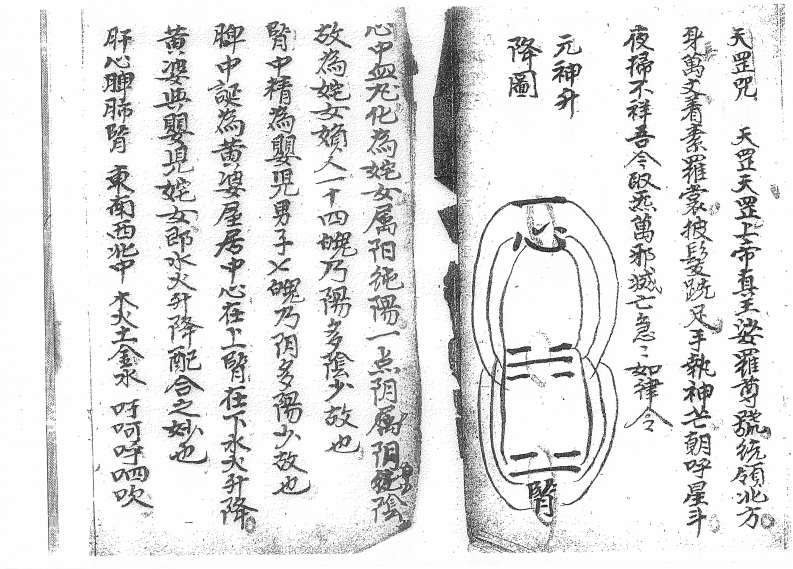 天罡咒　天罡天罡上帝真王娑羅尊號統領北方
身萬丈着素羅裳披髮跣足手執神芒朝呼星斗
夜掃不祥吾今取炁萬邪滅亡急〻如律令
元神升
降圖
心
腎
心中血尨化為姹女属阳純陽一点阴属阳陰
故為姹女嬪人一十四魄乃陽多陰少故也
腎中精為嬰児男子七魄乃阴多陽少故也
脾中誕為黄婆屋居中心在上腎在下水火升降
黄婆與嬰児姹女即水火升降配合之妙也
肝心脾肺腎　東南西北中　木火土金水　吁呵呼呬吹